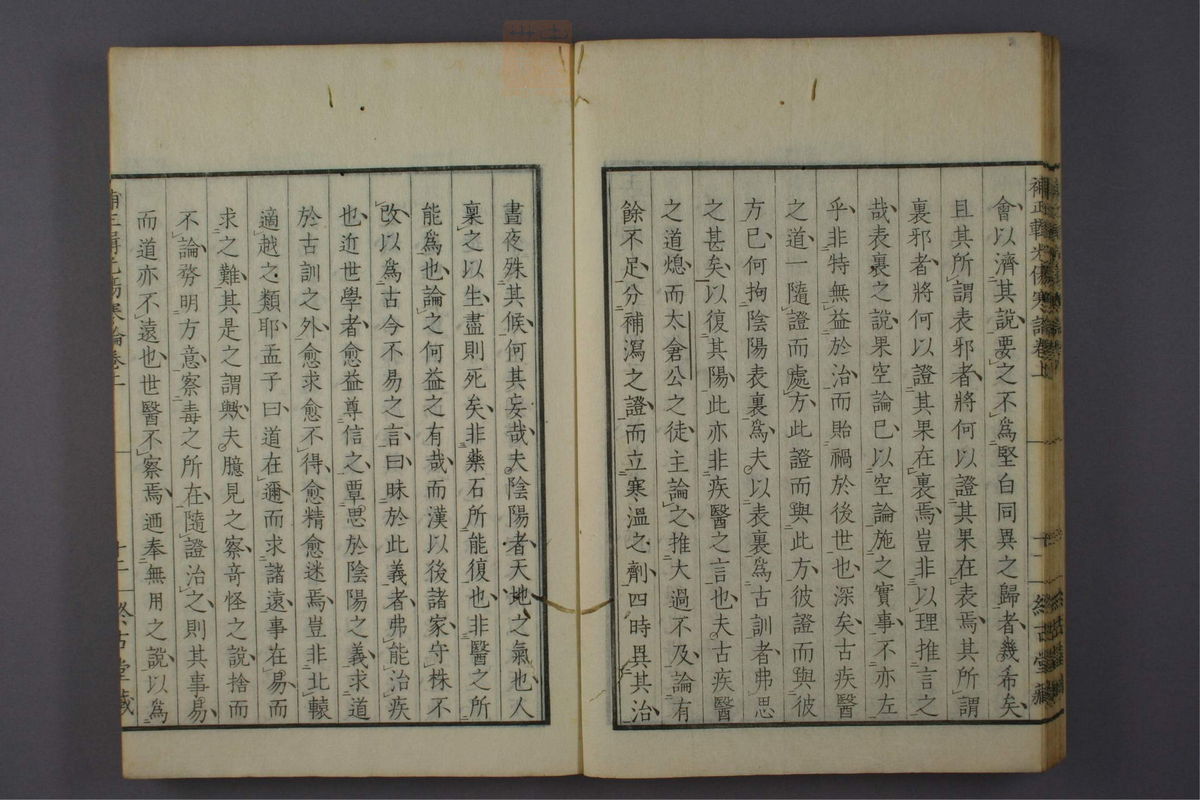 補正輯光傷寒論卷上 十一 終古堂藏
會以濟其說要之不爲堅白同異之歸者幾希矣
且其所謂表邪者將何以證其果在表焉其所謂
裏邪者將何以證其果在裏焉豈非以理推言之
哉表裏之說果空論已以空論施之實事不亦左
乎非特無益於治而貽禍於後世也深矣古疾醫
之道一隨證而處方此證而與此方彼證而與彼
方已何拘陰陽表裏爲夫以表裏爲古訓者弗思
之甚矣以復其陽此亦非疾醫之言也夫古疾醫
之道熄而太倉公之徒主論之推大過不及論有
餘不足分補瀉之證而立寒溫之劑四時異其治
晝夜殊其候何其妄哉夫陰陽者天地之氣也人
稟之以生盡則死矣非藥石所能復也非醫之所
能爲也論之何益之有哉而漢以後諸家守株不
改以爲古今不易之言曰昧於此義者弗能治疾
也近世學者愈益尊信之覃思於陰陽之義求道
於古訓之外愈求愈不得愈精愈迷焉豈非北轅
適越之類耶孟子曰道在邇而求諸遠事在易而
求之難其是之謂歟夫臆見之察奇怪之說捨而
不論務明方意察毒之所在隨證治之則其事易
而道亦不遠也世醫不察焉迺奉無用之說以爲
傷寒論卷上 十二 終古堂藏